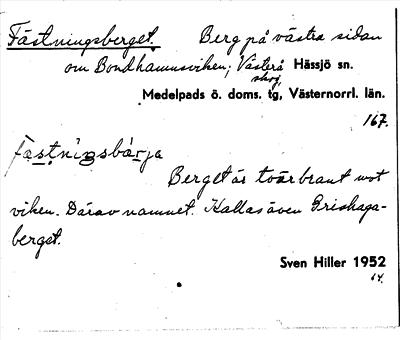 Fästningsberget. Berg på västra sidan
om Bondhamnsviken; Västerå Hässjö sn.
skog,
Medelpads ö. doms. tg, Västernorrl. län.
167.
fästningsbárja
Berget är tvärbrant mot
viken. Därav namnet. Kallas även Grishaga-
berget.
Sven Hiller 1952